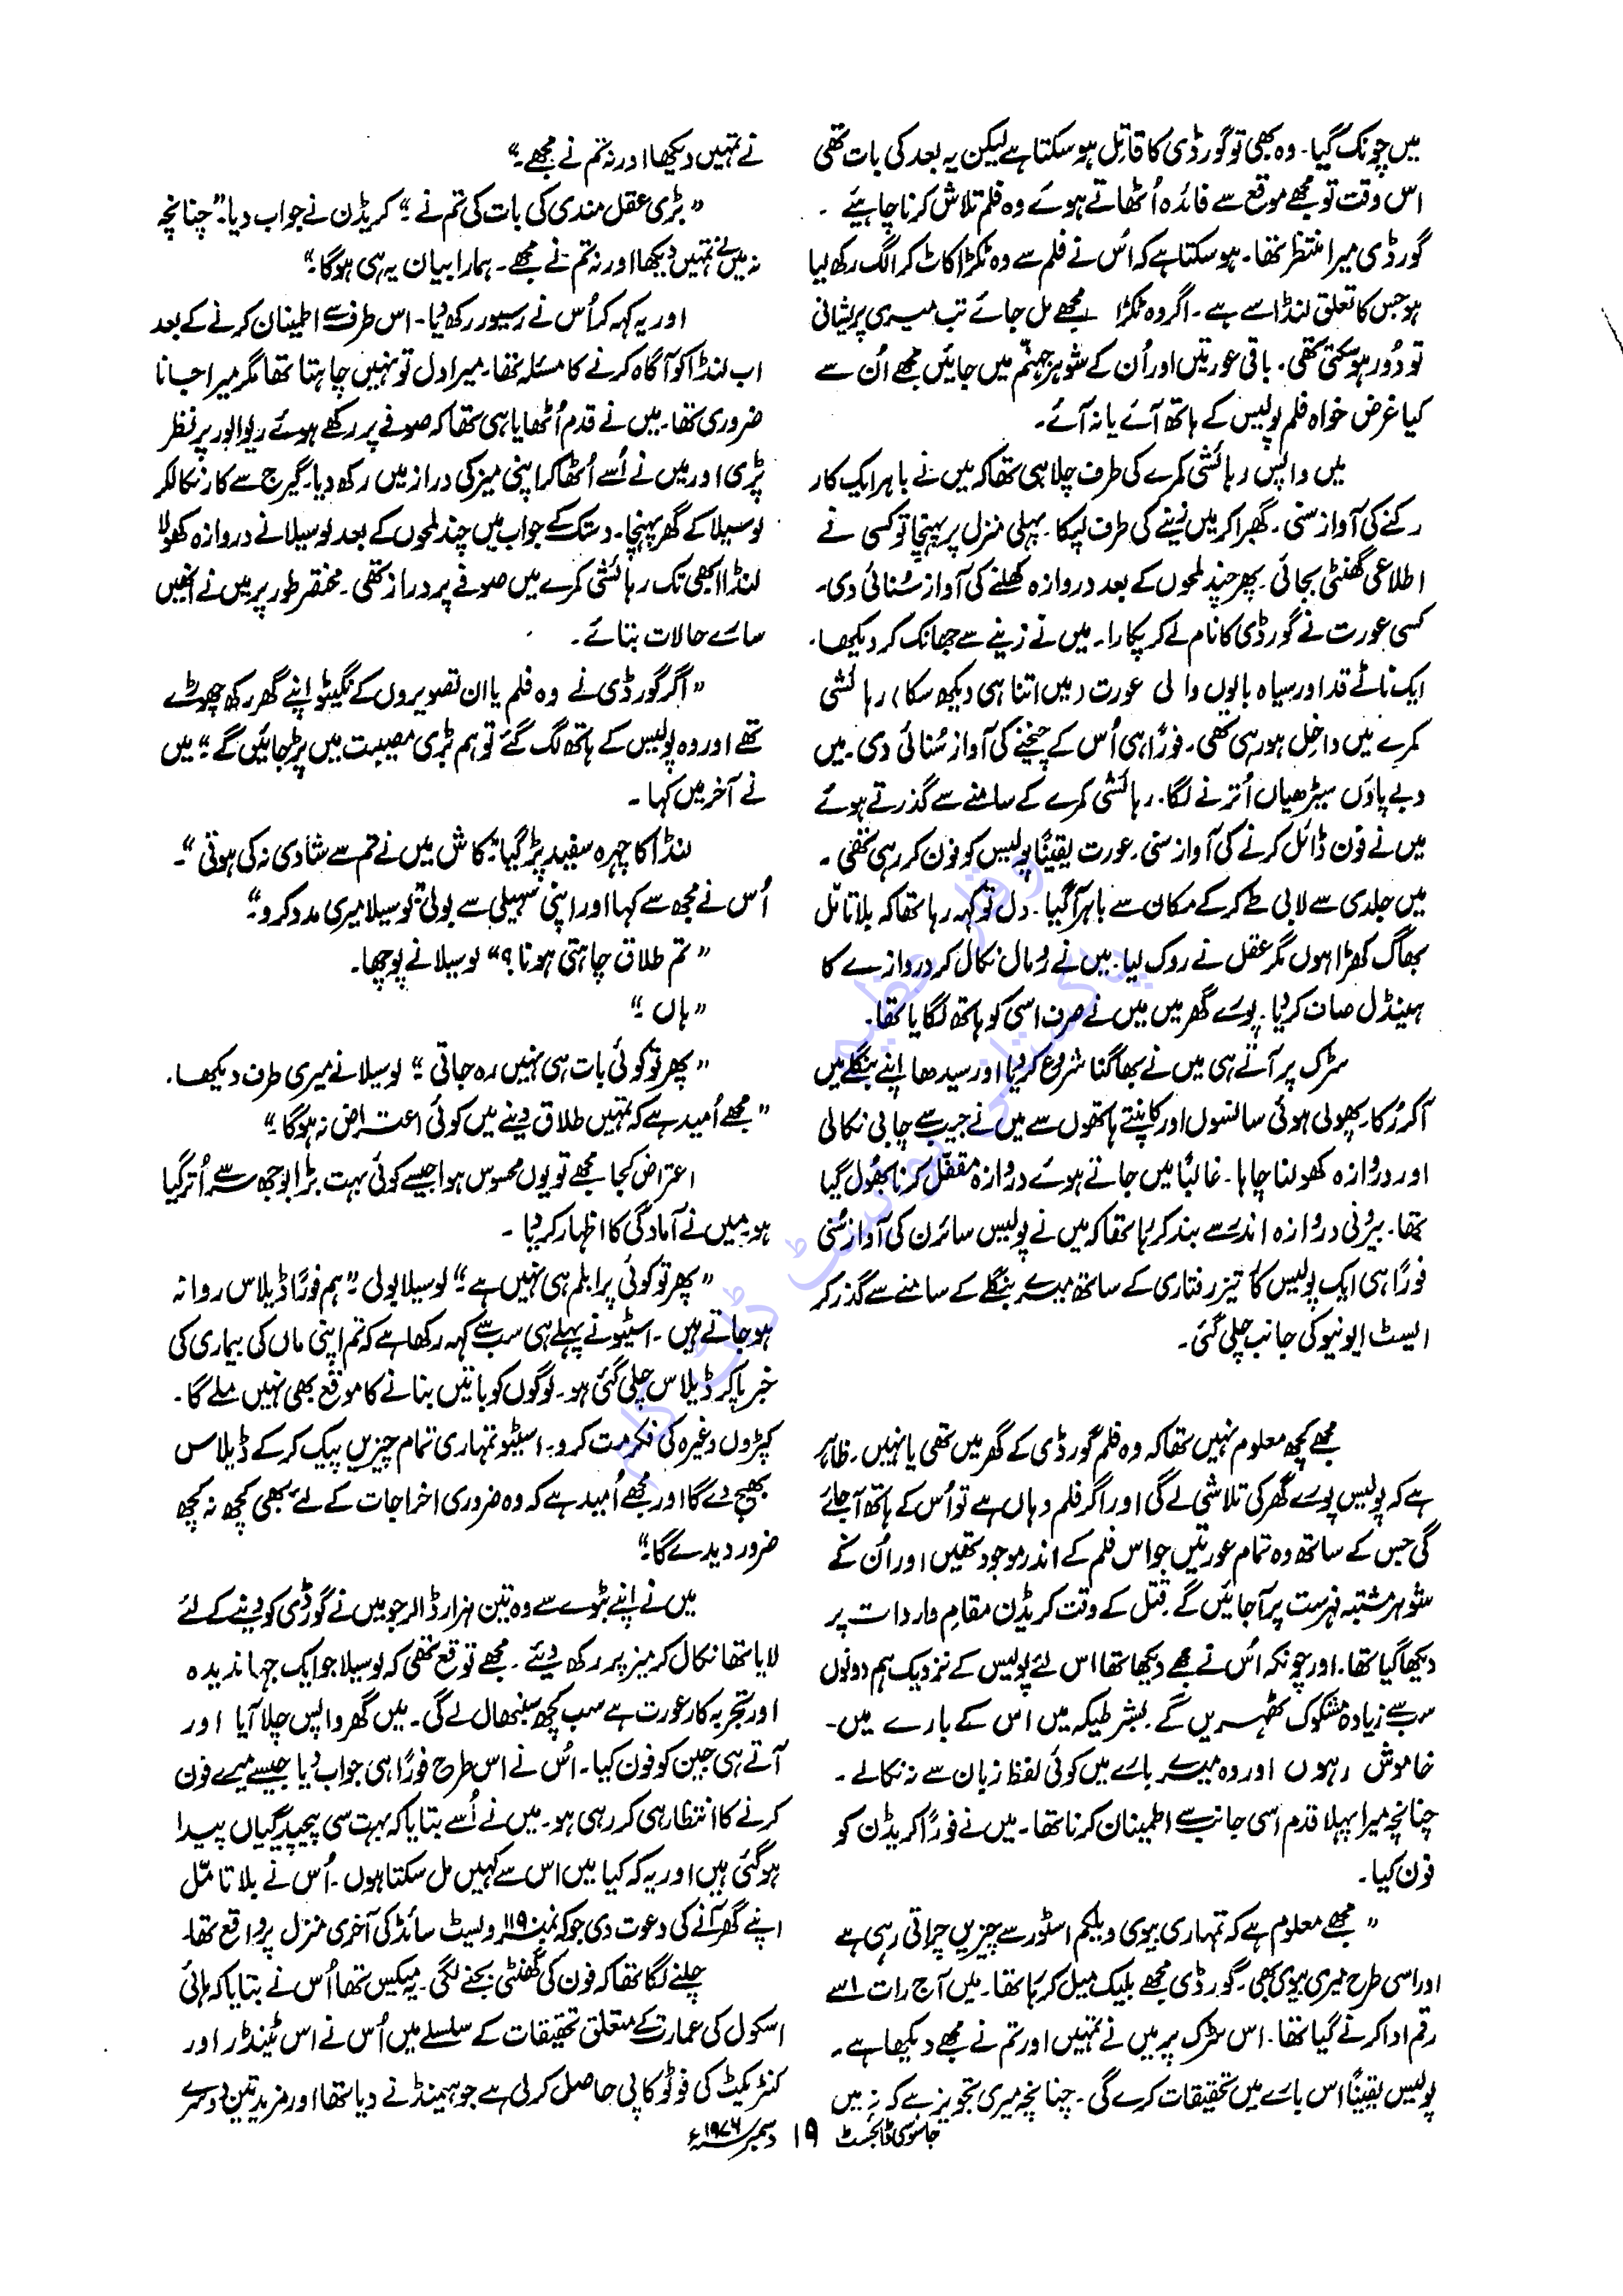 میں چونک گیا۔ وہ بھی تو گورڈی کا قاتل ہو سکتا ہے لیکن یہ بعد کی بات تھی
اس وقت تو مجھے موقع سے فائدہ اُٹھاتے ہوئے وہ فلم تلاش کرنا چاہیئے ۔
گورڈی میرا منتظر تھا۔ ہو سکتا ہے کہ اُس نے فلم سے وہ ٹکڑا کاٹ کر الگ رکھ لیا
ہو جس کا تعلق لنڈا سے ہے۔ اگر وہ ٹکڑا مجھے مل جائے تب میری پریشانی
تو دُور ہو سکتی تھی۔ باقی عورتیں اور اُن کے شوہر جہنّم میں جائیں مجھے اُن سے
کیا غرض خواہ فلم پولیس کے ہاتھ آئے یا نہ آئے۔
میں واپس رہائشی کمرے کی طرف چلا ہی تھا کہ میں نے باہر ایک کار
رکنے کی آواز سنی۔ گھبرا کر میں زینے کی طرف لپکا۔ پہلی منزل پر پہنچا تو کسی نے
اطلاعی گھنٹی بجائی۔ پھر چند لمحوں کے بعد دروازہ کھلنے کی آواز سُنائی دی۔
کسی عورت نے گورڈی کا نام لے کر پکارا۔ میں نے زینے سے جھانک کر دیکھا۔
ایک ناٹے قد اور سیاہ بالوں والی عورت (میں اتنا ہی دیکھ سکا) رہائشی
کمرے میں داخل ہو رہی تھی۔ فورًا ہی اُس کے چیخنے کی آواز سُنائی دی۔ میں
دبے پاؤں سیڑھیاں اُترنے لگا۔ رہائشی کمرے کے سامنے سے گذرتے ہوئے
میں نے فون ڈائل کرنے کی آواز سنی۔ عورت یقینًا پولیس کو فون کر رہی تھی۔
میں جلدی سے لابی طے کر کے مکان سے باہر آ گیا۔ دل تو کہہ رہا تھا کہ بلا تامّل
بھاگ کھڑا ہوں مگر عقل نے روک لیا۔ میں نے رُومال نکال کر دروازے کا
ہینڈل صاف کر دیا۔ پورے گھر میں میں نے صرف اسی کو ہاتھ لگایا تھا۔
سڑک پر آتے ہی میں نے بھاگنا شروع کر دیا اور سیدھا اپنے بنگلے میں
آ کر رُکا۔ پھولی ہوئی سانسوں اور کانپتے ہاتھوں سے میں نے جیب سے چابی نکالی
اور دروازہ کھولنا چاہا۔ غالبًا میں جاتے ہوئے دروازہ مقفل کرنا بھُول گیا
تھا۔ بیرونی دروازہ اندر سے بند کر رہا تھا کہ میں نے پولیس سائرن کی آواز سُنی
فورًا ہی ایک پولیس کار تیز رفتاری کے ساتھ میرے بنگلے کے سامنے سے گذر کر
ایسٹ ایونیو کی جانب چلی گئی۔
مجھے کچھ معلوم نہیں تھا کہ وہ فلم گورڈی کے گھر میں تھی یا نہیں۔ ظاہر
ہے کہ پولیس پورے گھر کی تلاشی لے گی اور اگر فلم وہاں ہے تو اُس کے ہاتھ آجائے
گی جس کے ساتھ وہ تمام عورتیں جو اس فلم کے اندر موجود تھیں اور اُن کے
شوہر مشتبہ فہرست پر آ جائیں گے۔ قتل کے وقت کریڈن مقامِ واردات پر
دیکھا گیا تھا۔ اور چونکہ اُس نے مجھے دیکھا تھا اس لئے پولیس کے نزدیک ہم دونوں
سب سے زیادہ مشکوک ٹھہریں گے۔ بشرطیکہ میں اس کے بارے میں۔
خاموش رہوں اور وہ میرے بارے میں کوئی لفظ زبان سے نہ نکالے۔
چنانچہ میرا پہلا قدم اسی جانب سے اطمینان کرنا تھا۔ میں نے فورًا کریڈن کو
فون کیا۔
”مجھے معلوم ہے کہ تمہاری بیوی ویلکم اسٹور سے چیزیں چراتی رہی ہے
اور اسی طرح میری بیوی بھی۔ گورڈی مجھے بلیک میل کر رہا تھا۔ میں آج رات اسے
رقم ادا کرنے گیا تھا۔ اس سڑک پر میں نے تمہیں اور تم نے مجھے دیکھا ہے۔
پولیس یقینًا اس بارے میں تحقیقات کرے گی۔ چنانچہ میری تجویز ہے کہ نہ میں
نے تمہیں دیکھا اور نہ تم نے مجھے۔“
”بڑی عقل مندی کی بات کی تم نے“ کریڈن نے جواب دیا۔ ”چنانچہ
نہ میں نے تمہیں دیکھا اور نہ تم نے مجھے۔ ہمارا بیان یہ ہی ہوگا“
اور یہ کہہ کر اُس نے رسیور رکھ دیا۔ اس طرف سے اطمینان کرنے کے بعد
اب لنڈا کو آگاہ کرنے کا مسئلہ تھا۔ میرا دل تو نہیں چاہتا تھا مگر میرا جانا
ضروری تھا۔ میں نے قدم اُٹھایا ہی تھا کہ صوفے پر رکھے ہوئے ریوالور پر نظر
پڑی اور میں نے اُسے اُٹھا کر اپنی میز کی دراز میں رکھ دیا۔ گیرج سے کار نکالکر
لوسیلا کے گھر پہنچا۔ دستک کے جواب میں چند لمحوں کے بعد لوسیلا نے دروازہ کھولا
لنڈا ابھی تک رہائشی کمرے میں صوفے پر دراز تھی۔ مختصر طور پر میں نے انھیں
سارے حالات بتائے۔
”اگر گورڈی نے وہ فلم یا ان تصویروں کے نگیٹو اپنے گھر رکھ چھوڑے
تھے اور وہ پولیس کے ہاتھ لگ گئے تو ہم بڑی مصیبت میں پڑ جائیں گے“ میں
نے آخر میں کہا۔
لنڈا کا چہرہ سفید پڑ گیا ”کاش میں نے تم سے شادی نہ کی ہوتی“۔
اُس نے مجھ سے کہا اور اپنی سہیلی سے بولی ”لوسیلا میری مدد کرو“
”تم طلاق چاہتی ہو نا؟“ لوسیلا نے پوچھا۔
”ہاں“
”پھر تو کوئی بات ہی نہیں رہ جاتی“ لوسیلا نے میری طرف دیکھا۔
”مجھے اُمید ہے کہ تمہیں طلاق دینے میں کوئی اعتراض نہ ہوگا“
اعتراض کجا مجھے تو یوں محسوس ہوا جیسے کوئی بہت بڑا بوجھ سر سے اُتر گیا
ہو۔ میں نے آمادگی کا اظہار کر دیا۔
”پھر تو کوئی پرابلم ہی نہیں ہے“ لوسیلا بولی ”ہم فورًا ڈیلاس روانہ
ہو جاتے ہیں۔ اسٹیو نے پہلے ہی سب سے کہہ رکھا ہے کہ تم اپنی ماں کی بیماری کی
خبر پا کر ڈیلاس چلی گئی ہو۔ لوگوں کو باتیں بنانے کا موقع بھی نہیں ملے گا۔
کپڑوں وغیرہ کی فکر مت کرو۔ اسٹیو تمہاری تمام چیزیں پیک کر کے ڈیلاس
بھیج دے گا اور مجھے اُمید ہے کہ وہ ضروری اخراجات کے لئے بھی کچھ نہ کچھ
ضرور دیدے گا“
میں نے اپنے بٹوے سے وہ تین ہزار ڈالر جو میں نے گورڈی کو دینے کے لئے
لایا تھا نکال کر میز پر رکھ دیئے۔ مجھے توقع تھی کہ لوسیلا جو ایک جہاندیدہ
اور تجربہ کار عورت ہے سب کچھ سنبھال لے گی۔ میں گھر واپس چلا آیا اور
آتے ہی جین کو فون کیا۔ اُس نے اس طرح فورًا ہی جواب دیا جیسے میرے فون
کرنے کا انتظار ہی کر رہی ہو۔ میں نے اُسے بتایا کہ بہت سی پیچیدگیاں پیدا
ہو گئی ہیں اور یہ کہ کیا میں اس سے کہیں مل سکتا ہوں۔ اُس نے بلا تامّل
اپنے گھر آنے کی دعوت دی جو کہ نمبر ۱۱۹ ویسٹ سائڈ کی آخری منزل پر واقع تھا۔
چلنے لگا تھا کہ فون کی گھنٹی بجنے لگی۔ میکس تھا اُس نے بتایا کہ ہائی
اسکول کی عمارت کے متعلق تحقیقات کے سلسلے میں اُس نے اس ٹینڈر اور
کنٹریکٹ کی فوٹو کاپی حاصل کر لی ہے جو ہیمنڈ نے دیا تھا اور مزید تین دوسرے
جاسوسی ڈائجسٹ ۱۹ دسمبر ۱۹۷۶ء